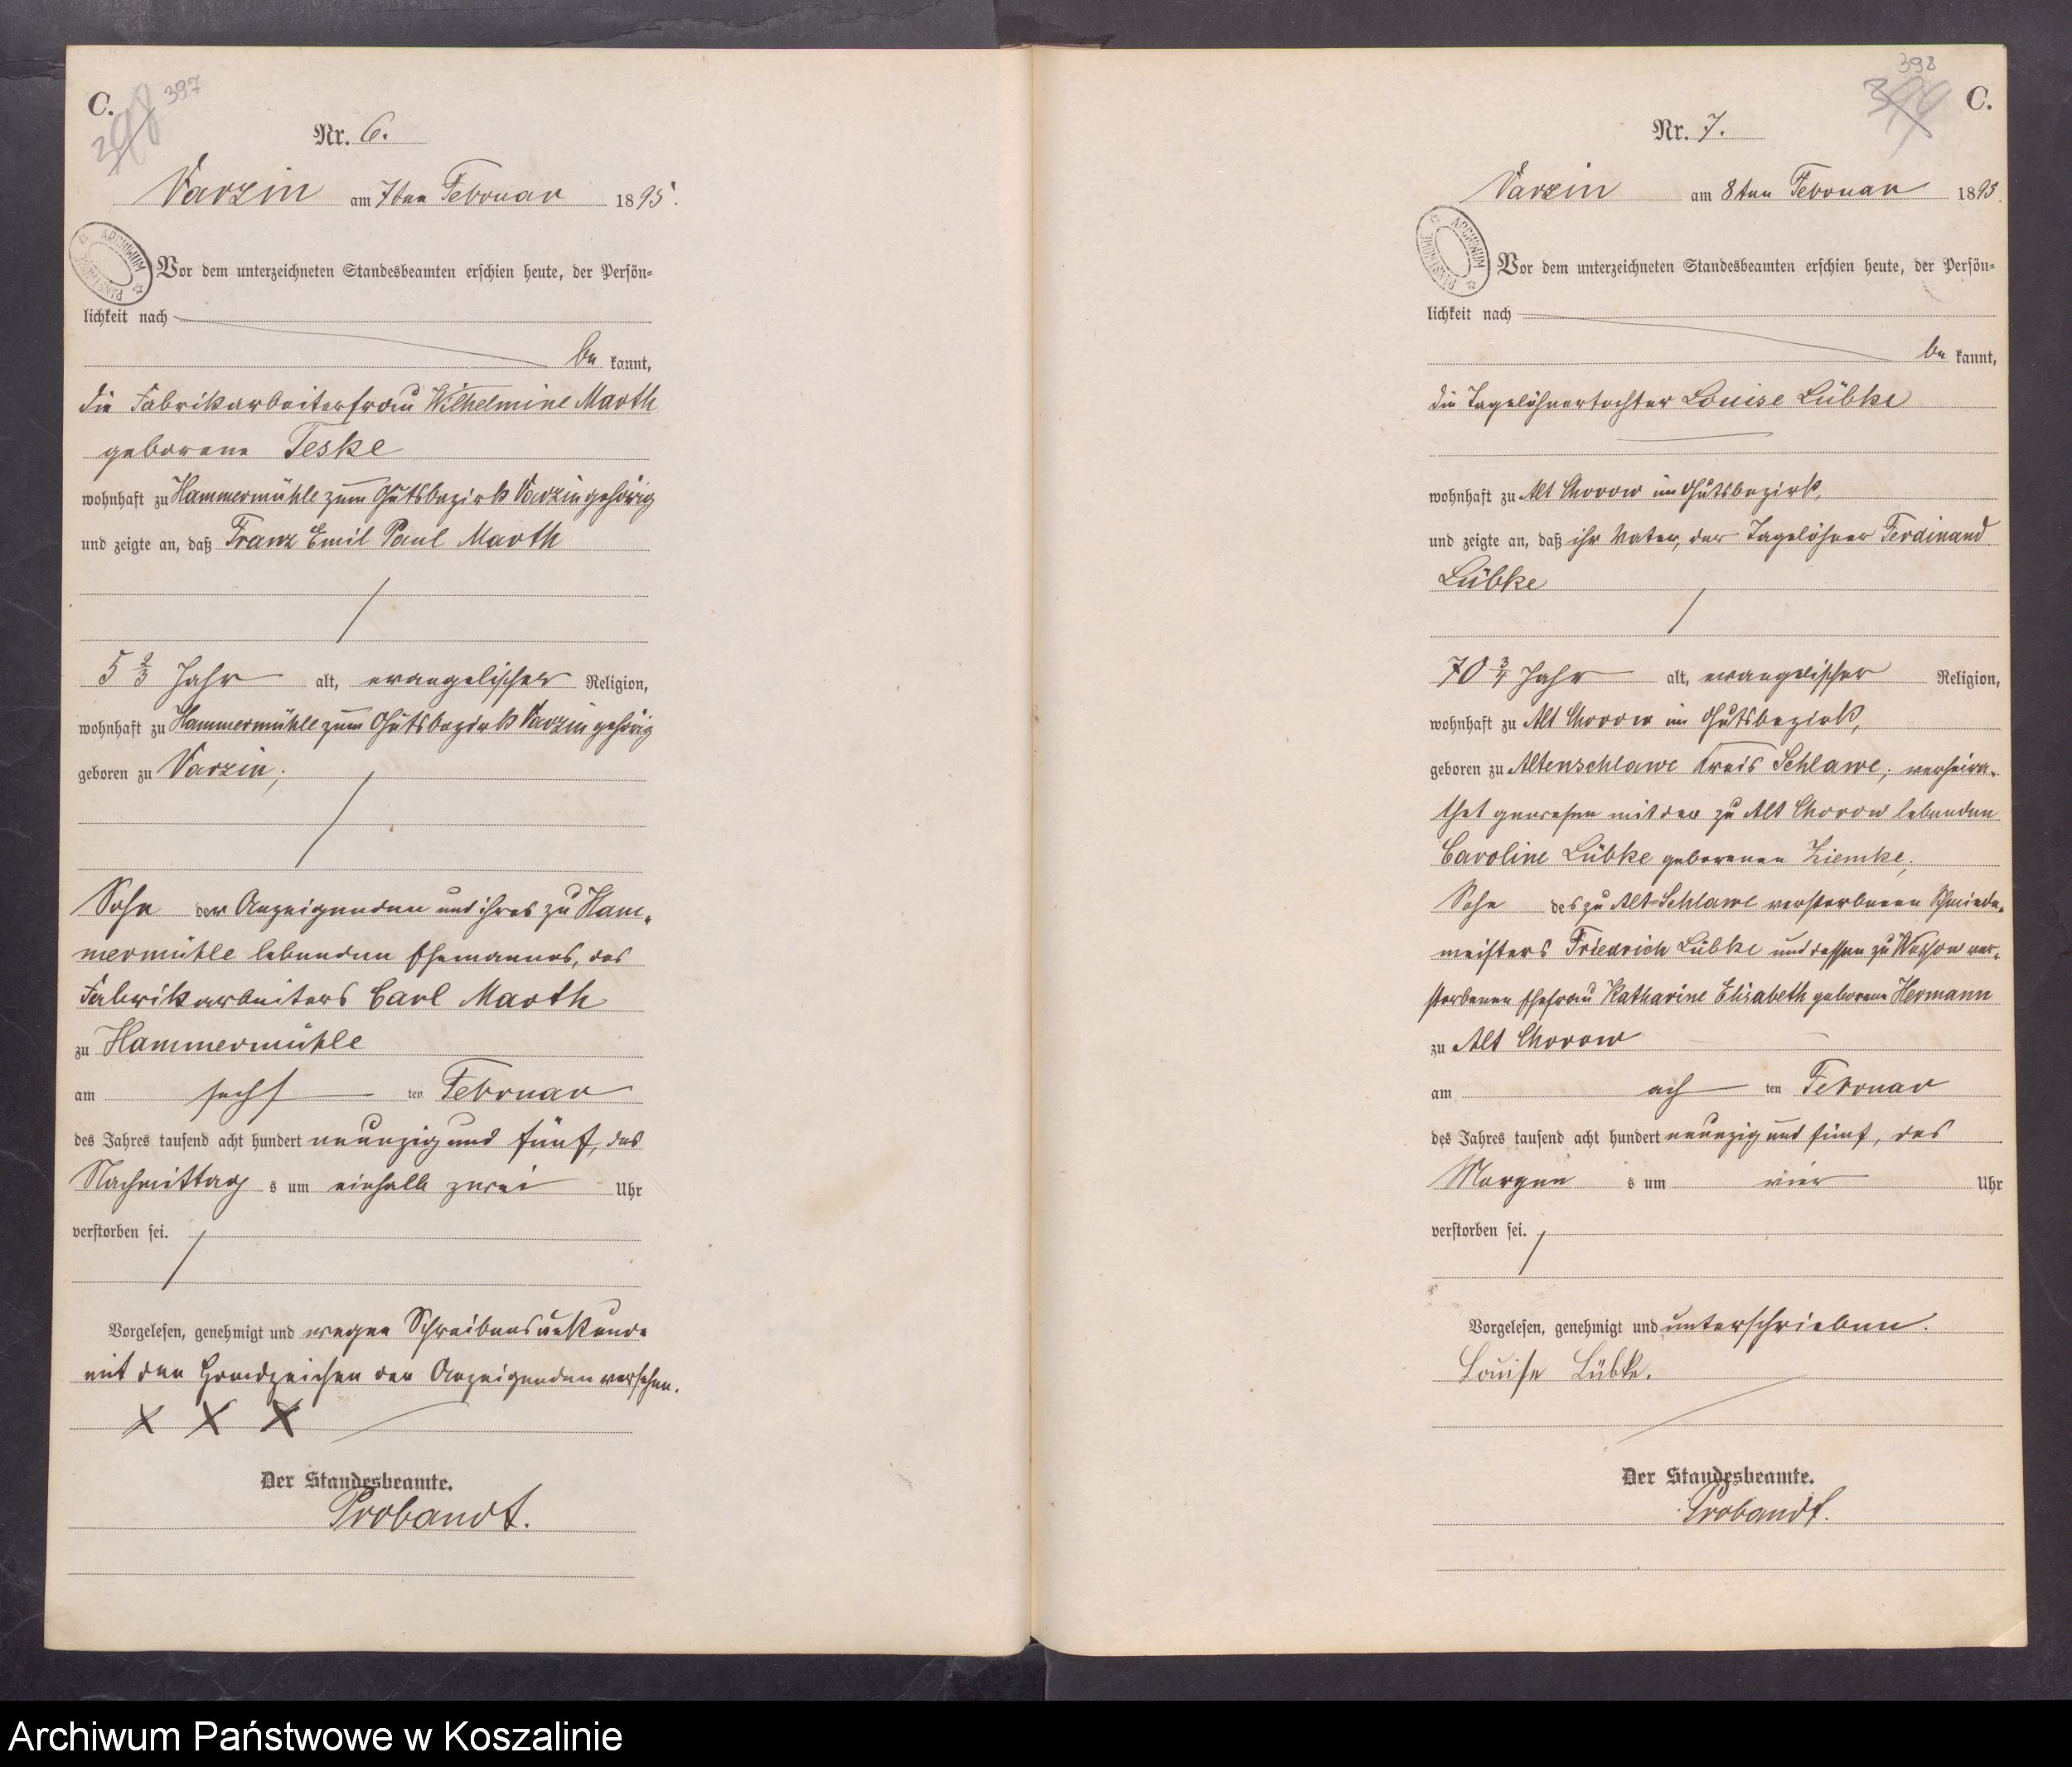 C.
398 397
Nr. 6.
Varzin am 7ten Februar 1895.
ARCHIWUM PAŃSTWOWE
Vor dem unterzeichneten Standesbeamten erschien heute, der Persön-
lichkeit nach
be kannt,
die Fabrikarbeiterfrau Wilhelmine Marth
geborene Teske
wohnhaft zu Hammermühle zum Gutsbezirk Varzin gehörig
und zeigte an, daß Franz Emil Paul Marth
5 2/3 Jahr alt, evangelischer Religion,
wohnhaft zu Hammermühle zum Gutsbezirk Varzin gehörig
geboren zu Varzin;
Sohn der Anzeigenden und ihres zu Ham-
mermühle lebenden Ehemannes, des
Fabrikarbeiters Carl Marth
zu Hammermühle
am sechs ten Februar
des Jahres tausend acht hundert neunzig und fünf, des
Nachmittag s um einhalb zwei Uhr
verstorben sei.
Vorgelesen, genehmigt und wegen Schreibensunkunde
mit den Handzeichen der Anzeigenden versehen.
X X X
Der Standesbeamte.
Probandt.
398
399 C.
Nr. 7.
Varzin am 8ten Februar 1895.
ARCHIWUM PAŃSTWOWE
Vor dem unterzeichneten Standesbeamten erschien heute, der Persön-
lichkeit nach
be kannt,
die Tagelöhnertochter Louise Lübke
wohnhaft zu Alt Chorow im Gutsbezirk,
und zeigte an, daß ihr Vater, der Tagelöhner Ferdinand
Lübke
70 3/4 Jahr alt, evangelischer Religion,
wohnhaft zu Alt Chorow im Gutsbezirk,
geboren zu Altenschlawe Kreis Schlawe; verheira-
thet gewesen mit der zu Alt Chorow lebenden
Caroline Lübke geborenen Ziemke;
Sohn des zu Alt-Schlawe verstorbenen Schmiede-
meisters Friedrich Lübke und dessen zu Wussow ver-
storbenen Ehefrau Katharine Elisabeth geborene Hermann
zu Alt Chorow
am ach ten Februar
des Jahres tausend acht hundert neunzig und fünf, des
Morgen s um vier Uhr
verstorben sei.
Vorgelesen, genehmigt und unterschrieben.
Louise Lübke.
Der Standesbeamte.
Probandt.
Archiwum Państwowe w Koszalinie